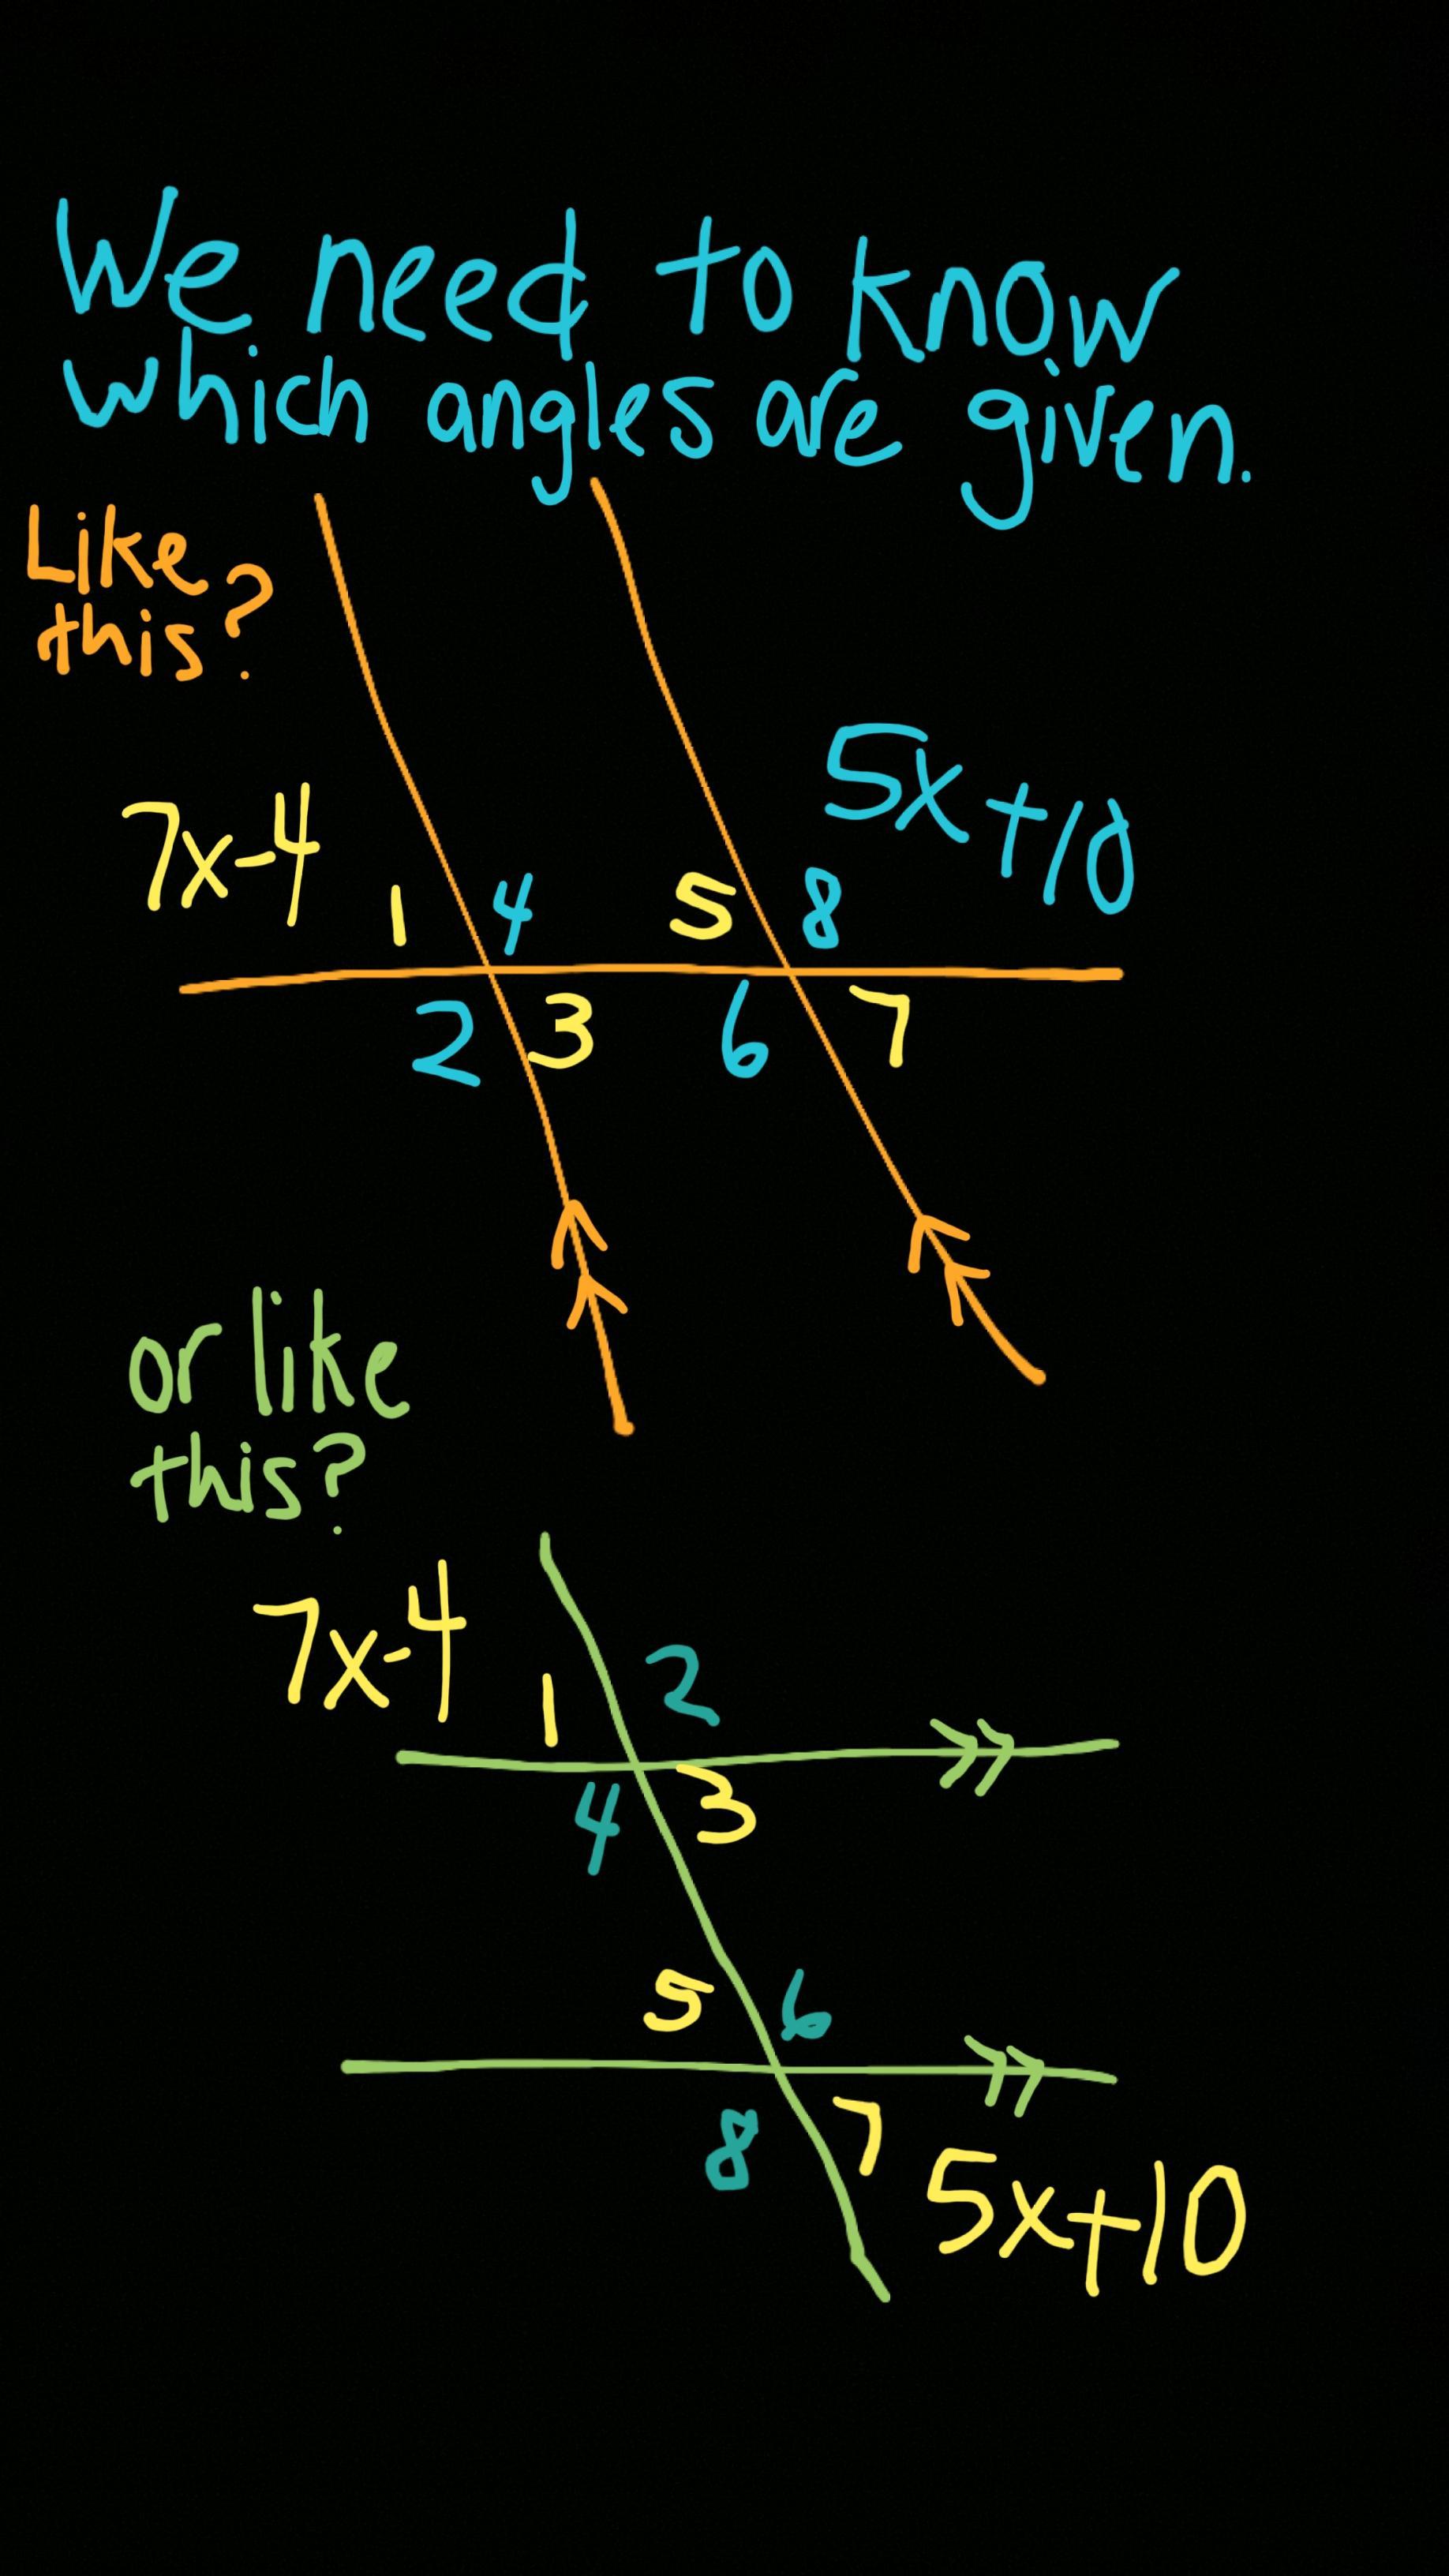 We need to know
which angles are given.
Like
this?
7x-4
5x+10
1 4 5 8
2 3 6 7
or like
this?
7x-4
1 2
4 3
5 6
8 7
5x+10